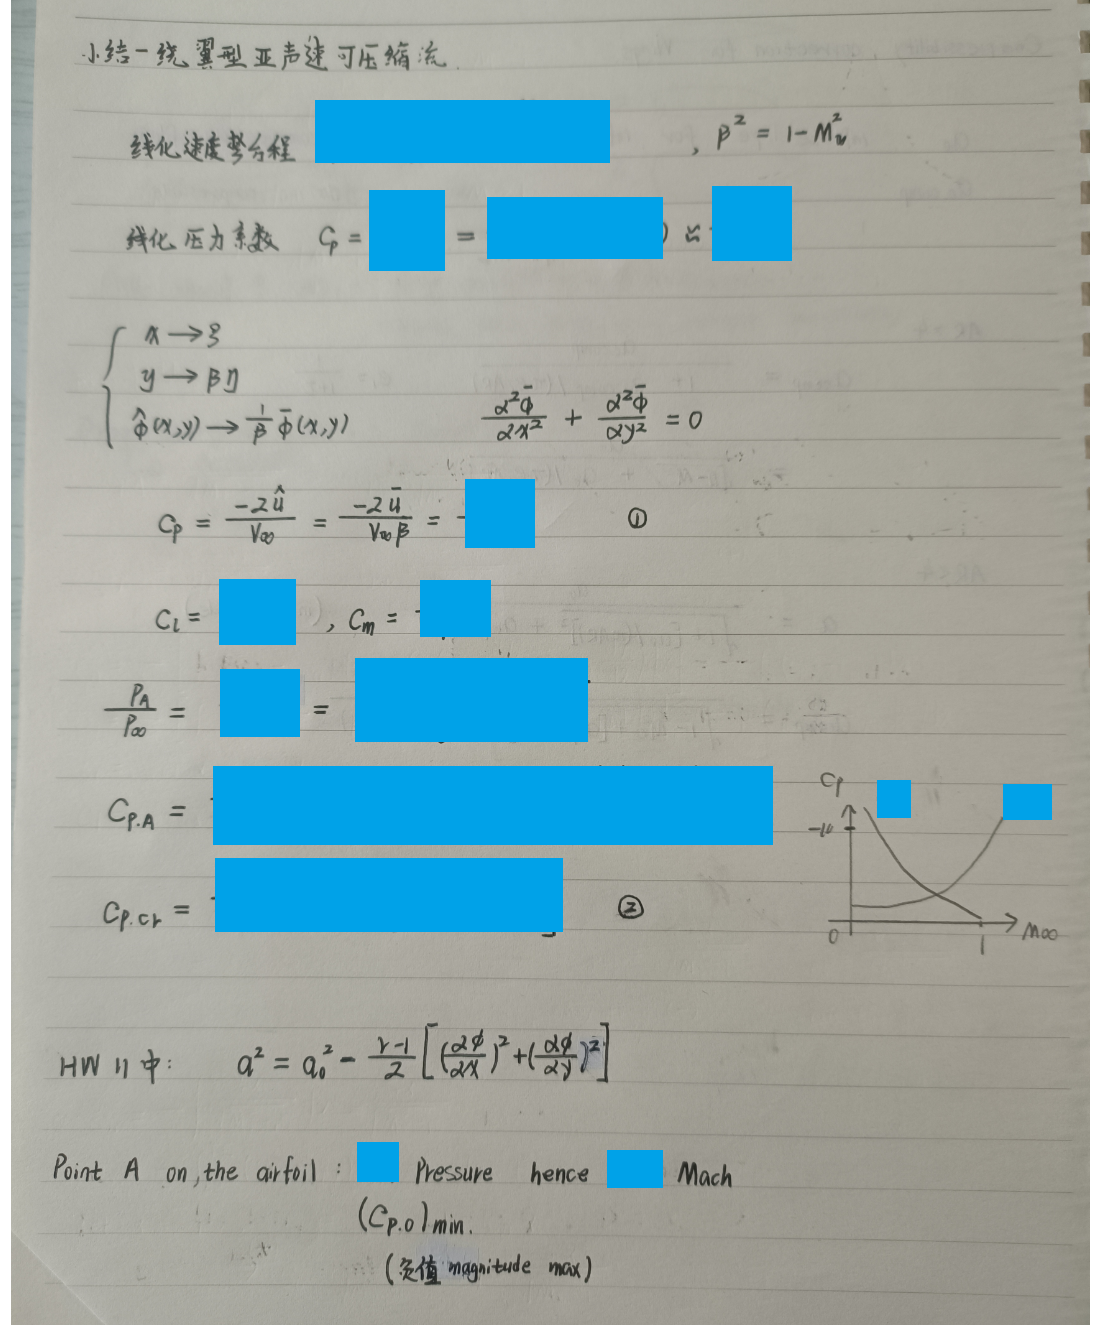 小结一绕翼型亚声速可压缩流
线化速度势方程 , β² = 1-M∞²
线化压力系数 Cp = = ) ≈
x → ξ
y → βη
φ̂(x,y) → 1/β φ̄(x,y) ∂²φ̄/∂x² + ∂²φ̄/∂y² = 0
Cp = -2û/V∞ = -2ū/V∞β = ①
Cl = , Cm =
PA/P∞ = =
Cp.A =
Cp.cr = ②
Cp
0 1 M∞
HW 11 中: a² = a₀² - γ-1/2 [(∂φ/∂x)² + (∂φ/∂y)²]
Point A on the airfoil : Pressure hence Mach
(Cp.0)min.
(负值 magnitude max)